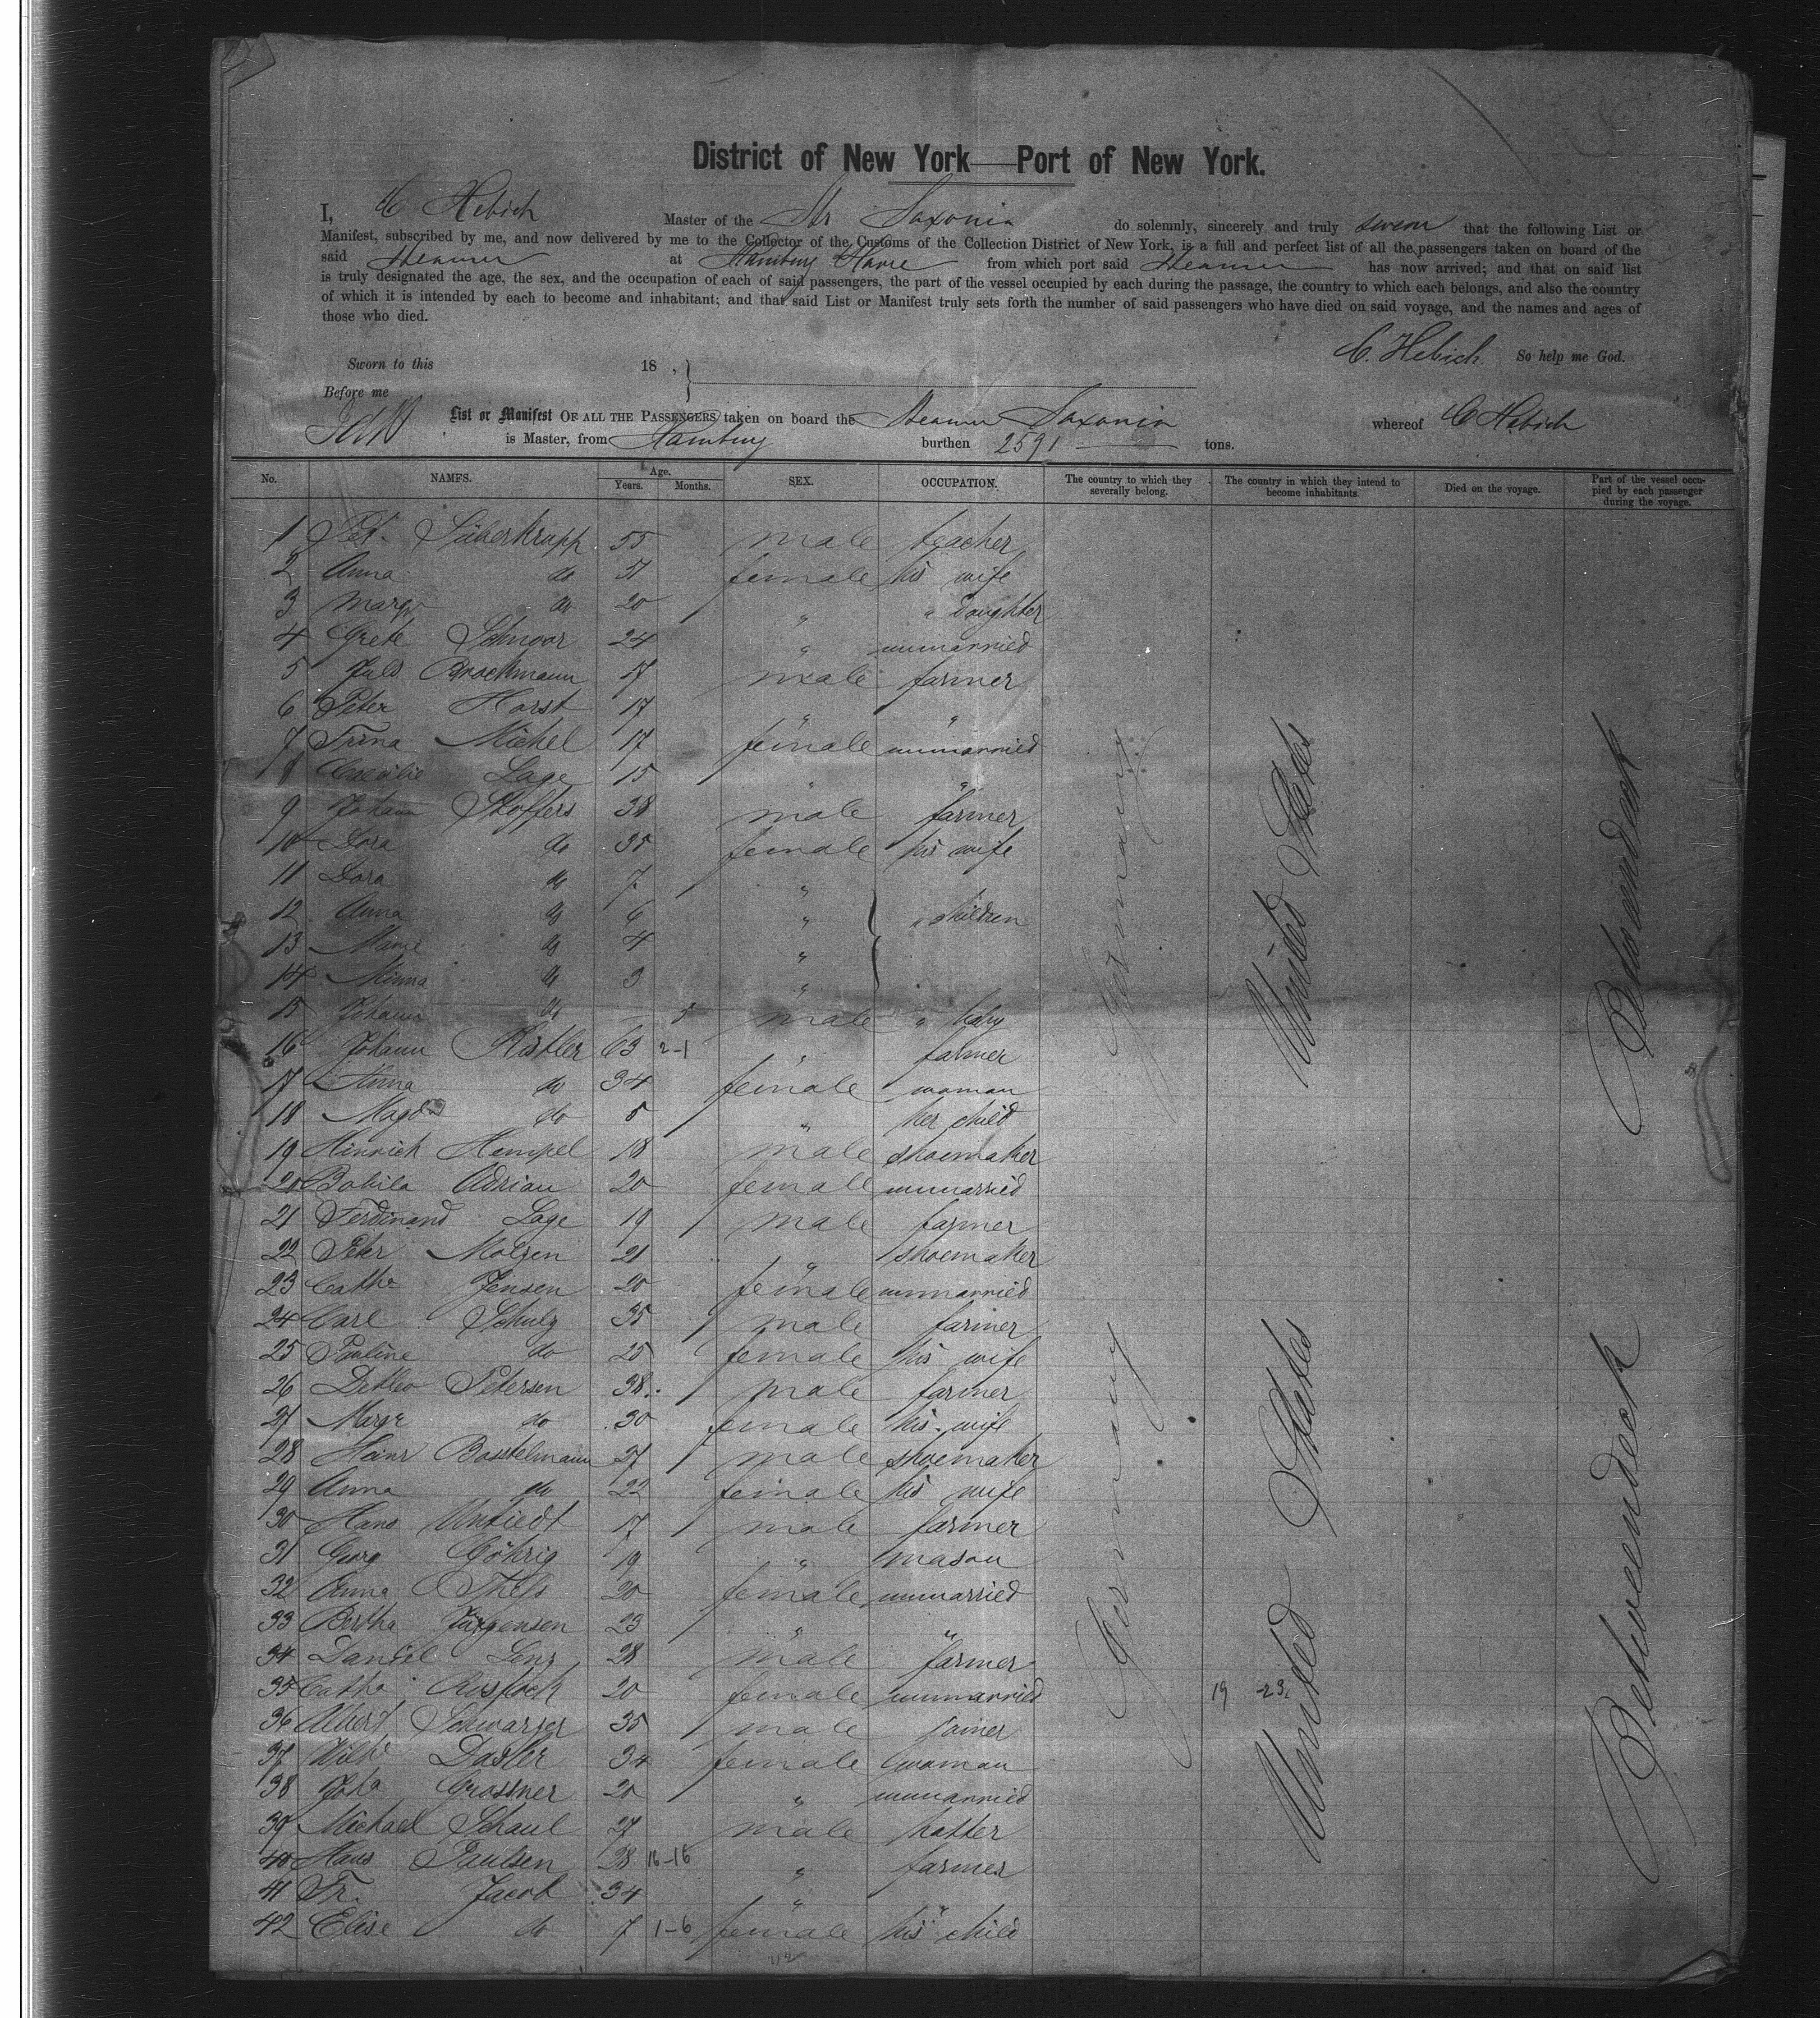 District of New York—Port of New York.
I, C Hebich Master of the Str Saxonia do solemnly, sincerely and truly swear that the following List or
Manifest, subscribed by me, and now delivered by me to the Collector of the Customs of the Collection District of New York, is a full and perfect list of all the passengers taken on board of the
said Steamer at Hamburg Havre from which port said Steamer has now arrived; and that on said list
is truly designated the age, the sex, and the occupation of each of said passengers, the part of the vessel occupied by each during the passage, the country to which each belongs, and also the country
of which it is intended by each to become and inhabitant; and that said List or Manifest truly sets forth the number of said passengers who have died on said voyage, and the names and ages of
those who died.
C. Hebich. So help me God.
Sworn to this 18 ,
Before me
List or Manifest OF ALL THE PASSENGERS taken on board the Steamer Saxonia whereof C Hebich
is Master, from Hamburg burthen 2591 tons.
No. NAMES. Age. Years. Months. SEX. OCCUPATION. The country to which they severally belong. The country in which they intend to become inhabitants. Died on the voyage. Part of the vessel occupied by each passenger during the voyage.
1 Pet. Süberkrupp 55 male teacher
2 Anna do 51 female his wife
3 Margr do 20 " " daughter
4 Grete Schnoor 24 " unmarried
5 Juls Brockmann 17 male farmer
6 Peter Horst 17 " "
7 Trina Michel 17 female unmarried
8 Caecilie Lage 15 " "
9 Johann Stoffers 38 male farmer
10 Dora do 35 female his wife
11 Dora do 7 "
12 Anna do 6 " " children
13 Marie do 4 "
14 Minna do 3 "
15 Johann do — 5 male " baby
16 Johann Kistler 63 2-1 " farmer
17 Anna do 34 female woman
18 Magd do 5 " her child
19 Hinrich Hempel 18 male shoemaker
20 Adrian 20 female unmarried
21 Ferdinand Lage 19 male farmer
22 Peter Molzen 21 " shoemaker
23 Cathe Jensen 20 female unmarried
24 Carl Schulz 35 male farmer
25 Pauline do 25 female his wife
26 Detlev Petersen 38 male farmer
27 Margr do 30 female his wife
28 Heinr Bostelmann 27 male shoemaker
29 Anna do 22 female his wife
30 Hans 17 male farmer
31 Georg Göhrig 19 " mason
32 Anna Thels 20 female unmarried
33 Bertha Jürgensen 23 " "
34 Daniel Lenz 28 male farmer
35 Cathe 20 female unmarried
36 Albert Schwarzer 35 male joiner
37 Wilhe Dassler 34 female woman
38 Joha Grossner 20 " unmarried
39 Michael Schaul 27 male hatter
40 Hans Paulsen 38 16-16 " farmer
41 Fr. Jacob 34 " "
42 Elise do 7 1-6 female his child
Germany
United States
Betweendeck
Germany
United States
Betweendeck
19 -23